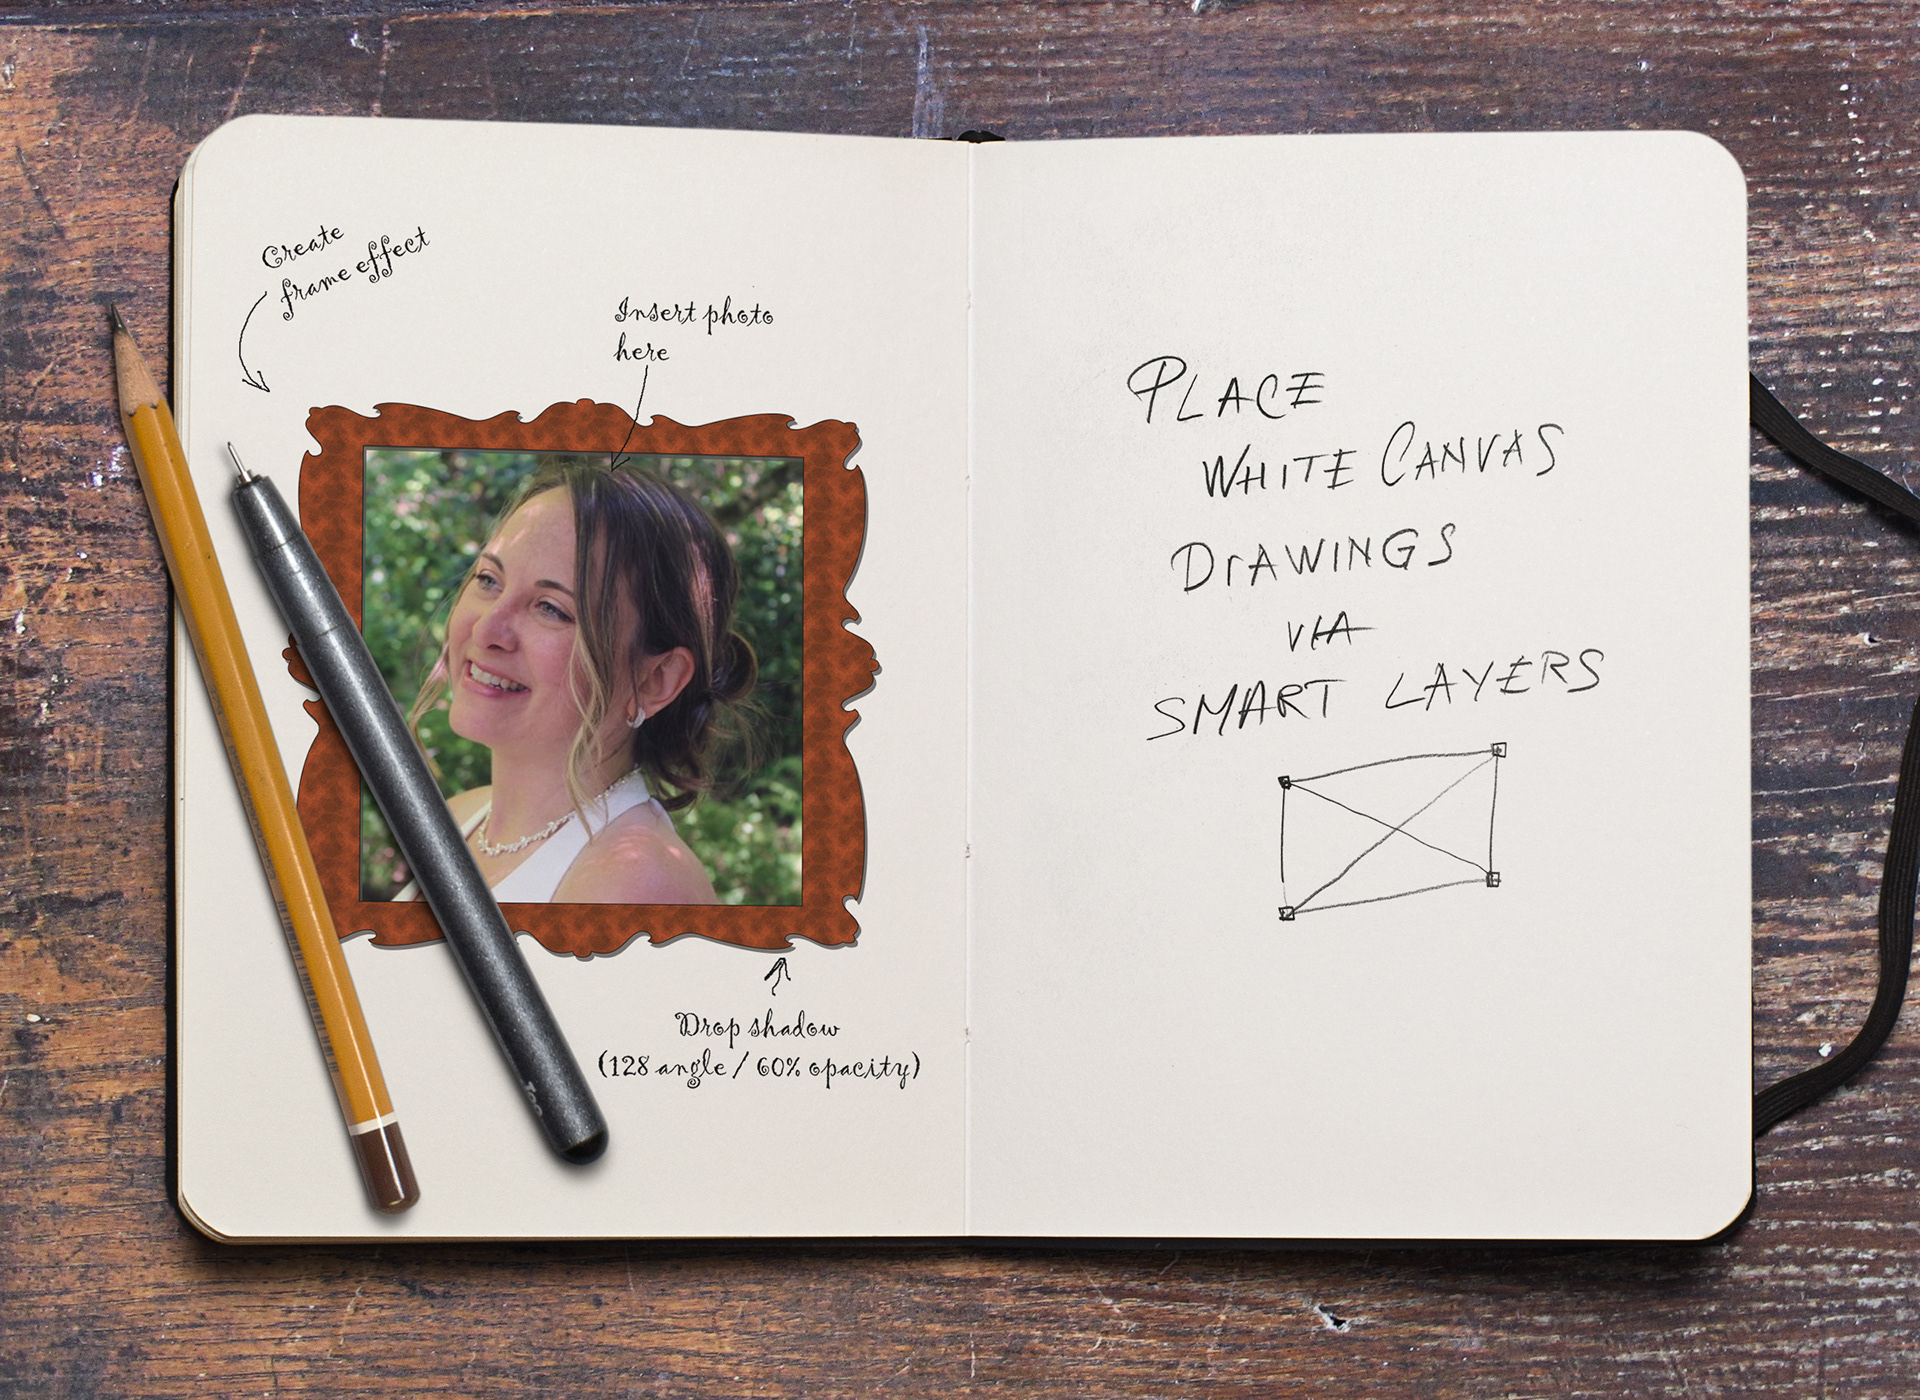 Create
frame effect
Insert photo
here
Drop shadow
(128 angle / 60% opacity)
PLACE
WHITE CANVAS
DrAWINGS
VIA
SMART LAYERS